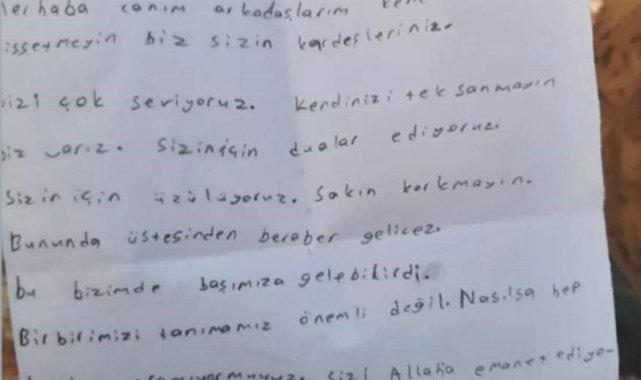 erhaba canım arkadaşlarım
issetmeyin biz sizin kardeşleriniz.
sizi çok seviyoruz. Kendinizi tek sanmayın
biz varız. Siziniçin dualar ediyoruz.
Sizin için üzülüyoruz. Sakın korkmayın.
Bununda üstesinden beraber gelicez.
bu bizimde başımıza gelebilirdi.
Birbirimizi tanımamız önemli değil. Nasılsa hep
sizi Allaha emanet ediyo-